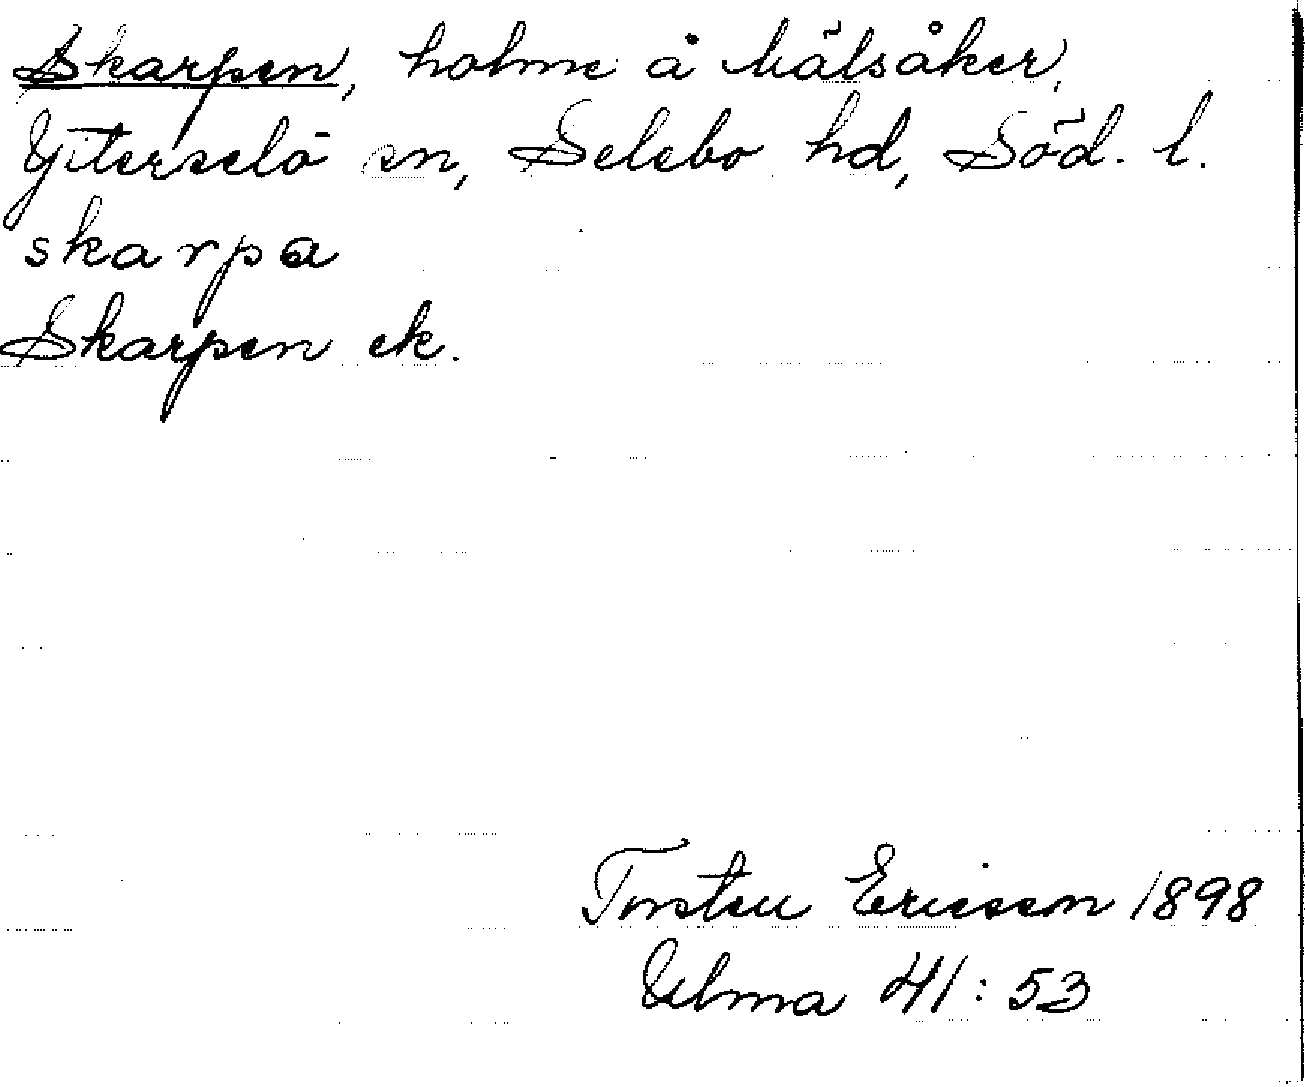 Skarpen, holme å Mälsåker,
Ytterselö sn, Selebo hd, Söd. l.
skarpa
Skarpen ek.
Torsten Ericsson 1898
Ulma 41:53